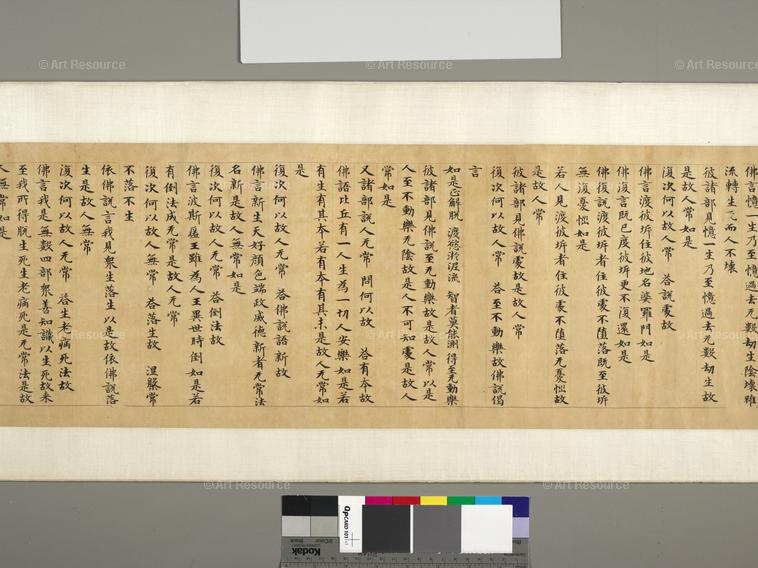 佛言憶一生乃至憶過去无數劫生陰壞雖
流轉生死而人不壞
彼諸部見憶一生乃至憶過去无數劫生故
是故人常如是
復次何以故人常 荅說處故
佛言渡彼坼住彼地名婆羅門如是
佛復言既已度彼坼更不復還如是
佛復說渡彼坼者住彼處不墮落既至彼坼
無復憂惱如是
若人見渡彼坼者住彼處不墮落无憂惱故
是故人常
彼諸部見佛說處故是故人常
復次何以故人常 荅至不動樂故佛說偈
言
如是正解脫 渡慾淤泥流 智者莫能測 得至无動樂
彼諸部見佛說至无動樂故是故人常以是
人至不動樂无陰故是人不可知處是故人
常如是
又諸部說人无常 問何以故 荅有本故
佛語比丘有一人生為一切人安樂如是若
有生有其本若有本有其末是故人无常如
是
復次何以故人无常 荅佛說語新故
佛言新生天好顏色端政威德新者无常法
名新是故人無常如是
復次何以故人无常 荅倒法故
佛言波斯匿王雖為人王異世時倒如是若
有倒法成无常是故人无常
復次何以故人無常 荅落生故 涅槃常
不落不生
依佛說言我見衆生落生以是故依佛說落
生是故人無常
復次何以故人无常 荅生老病死法故
佛言我是無數四部衆善知識以生死故来
至我所得脫生死生老病死是无常法是故
人無常如是
© Art Resource
© Art Resource
© Art Resource
© Art Resource
© Art Resource
© Art Resource
© Art Resource
© Art Resource
Kodak
OpCARD 101